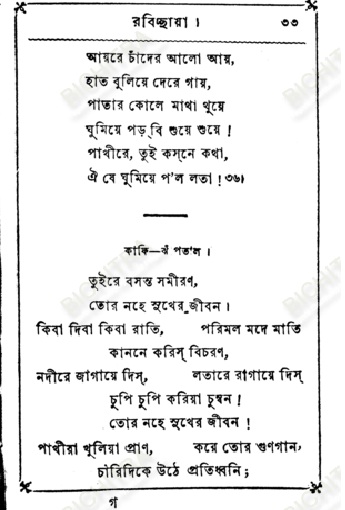 রবিচ্ছায়া। ৩৩
আয়রে চাঁদের আলো আয়,
হাত বুলিয়ে দেরে গায়,
পাতার কোলে মাথা থুয়ে
ঘুমিয়ে পড়্‌বি শুয়ে শুয়ে!
পাখীরে, তুই কস্‌নে কথা,
ঐ যে ঘুমিয়ে প'ল লতা! ৩৬।
কাফি—ঝাঁপতাল।
তুইরে বসন্ত সমীরণ,
তোর নহে সুখের জীবন।
কিবা দিবা কিবা রাতি, পরিমল মদে মাতি
কাননে করিস্‌ বিচরণ,
নদীরে জাগায়ে দিস্‌, লতারে রাগায়ে দিস্‌
চুপি চুপি করিয়া চুম্বন!
তোর নহে সুখের জীবন!
পাখীরা খুলিয়া প্রাণ, কয়ে তোর গুণগান,
চারিদিকে উঠে প্রতিধ্বনি;
গ